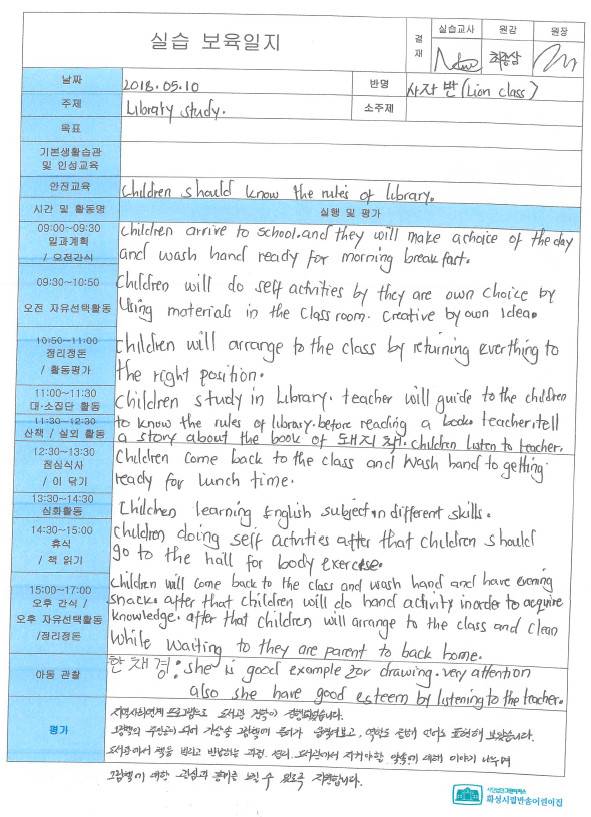 실습 보육일지
결재
실습교사 원감 원장
날짜 2018.05.10 반명 사자반 (Lion class)
주제 Library study. 소주제
목표
기본생활습관
및 인성교육
안전교육 Children should know the rules of library.
시간 및 활동명 실행 및 평가
09:00~09:30
일과계획
/ 오전간식
Children arrive to school.and they will make a choice of the day
and wash hand ready for morning breakfast.
09:30~10:50
오전 자유선택활동
Children will do self activities by they are own choice by
using materials in the classroom. Creative by own Idea.
10:50~11:00
정리정돈
/ 활동평가
Children will arrange to the class by returning everthing to
the right position.
11:00~11:30
대·소집단 활동
11:30~12:30
산책 / 실외 활동
Children study in Library. teacher will guide to the children
to know the rules of library. before reading a book. teacher tell
a story about the book of 돼지책. children listen to teacher.
12:30~13:30
점심식사
/ 이 닦기
Children come back to the class and wash hand to getting
ready for lunch time.
13:30~14:30
심화활동
Children learning English subject in different skills.
14:30~15:00
휴식
/ 책 읽기
Children doing self activities after that children should
go to the hall for body exercise.
15:00~17:00
오후 간식 /
오후 자유선택활동
/정리정돈
Children will come back to the class and wash hand and have evening
snack. after that children will do hand activity inorder to acquire
knowledge. after that children will arrange to the class and clean
while waiting to they are parent to back home.
아동 관찰
한채경: she is good example for drawing. very attention
also she have good esteem by listening to the teacher.
평가
지역사회연계 프로그램으로 도서관 견학이 진행되었습니다.
그림책의 주인공이 되어
도서관에서 책을 빌리고 반납하는 과정, 도서관에서 지켜야할 약속에 대해 이야기 나누며
그림책에 대한 관심과 흥미를 느낄 수 있도록 지원합니다.
화성시립반송어린이집